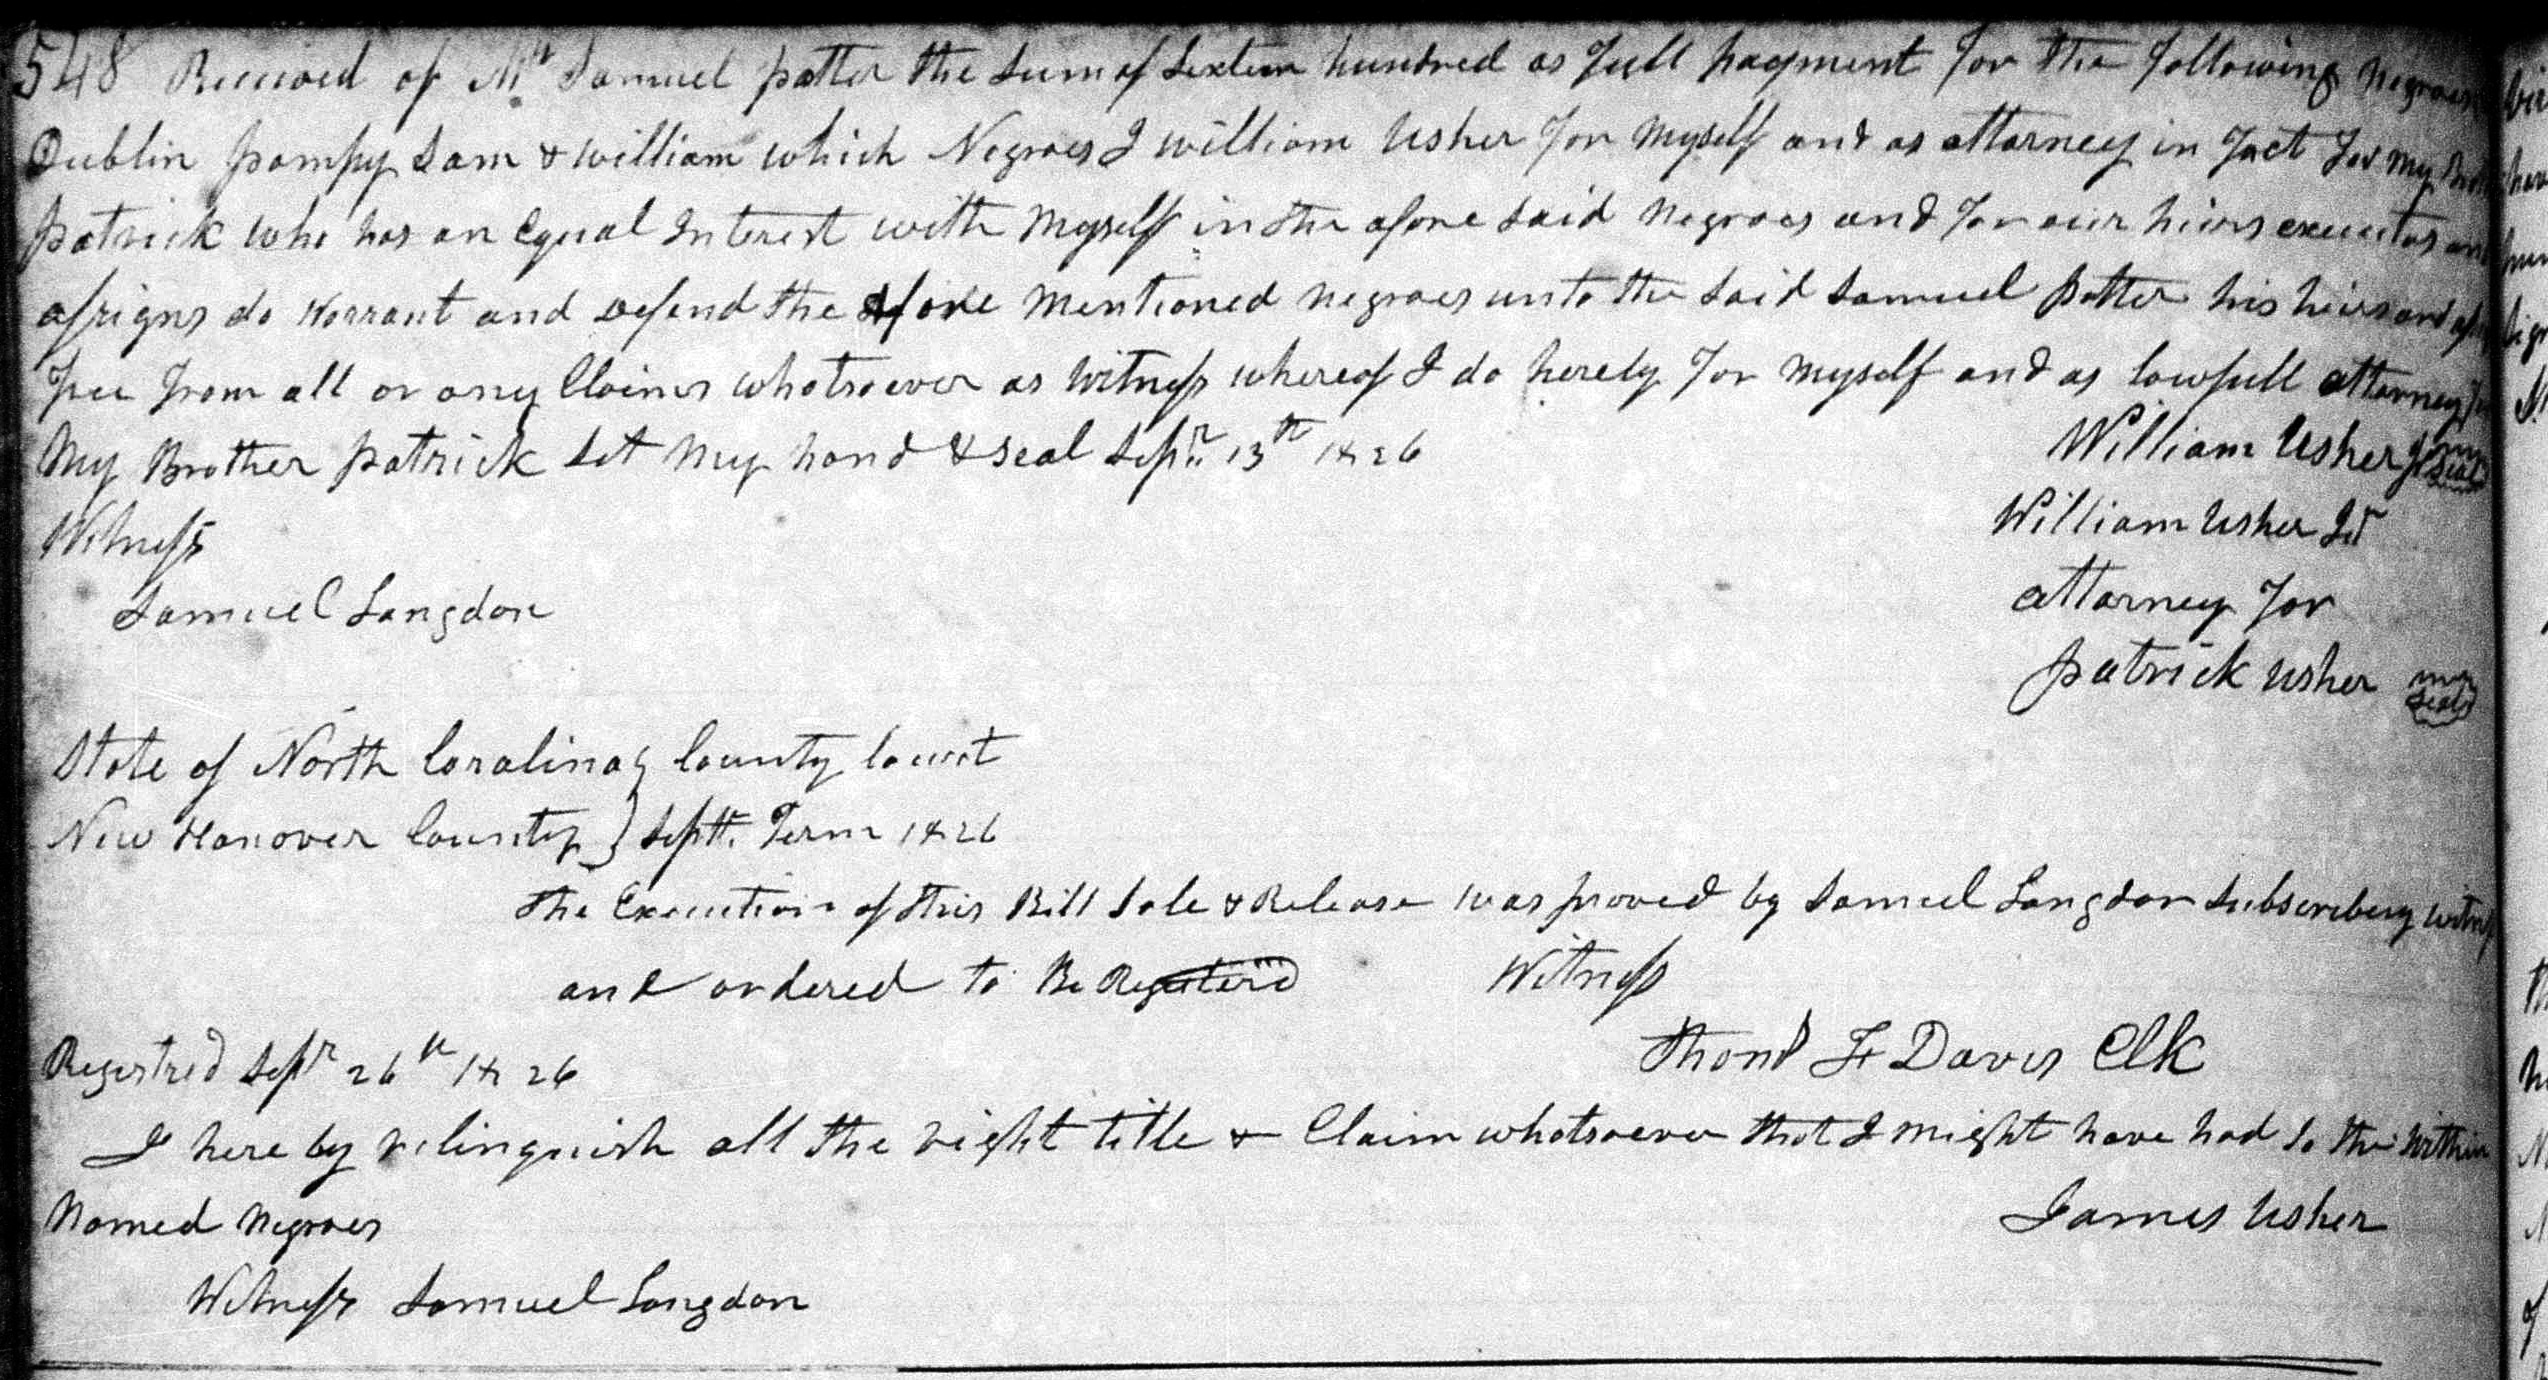 548 Received of Mr Samuel potter the Sum of Sixteen hundred as full payment for the following Negroes
Dublin pompy Sam & william which Negroes I william Usher for myself and as attorney in fact for my
patrick who has an Equal Interest with myself in the afore Said Negroes and for our heirs executors
assigns do Warrant and defend the afore mentioned negroes unto the Said Samuel Potter his heirs and
free from all or any Claims whatsoever as Witness whereof I do hereby for myself and as lawfull attorney
My Brother patrick Set my hand & Seal Sepr. 13th 1826
William Usher Jr Seal
Witness
William Usher Jr
Samuel Langdon
attorney for
patrick Usher Seal
State of North Carolina } County Court
New Hanover County } Septr. Term 1826
The Execution of this Bill Sale & Release was proved by Samuel Langdon Subscribeing witness
and ordered to Be Registered Witness
Thoms F Davis Clk
Registred Sepr 26th 1826
I here by relinquish all the right title & Claim whatsoever that I might have had to the within
Named Negroes
James Usher
Witness Samuel Langdon